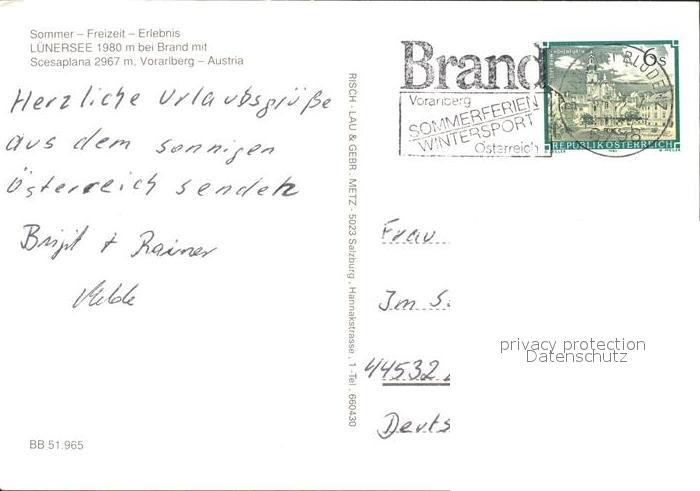 Sommer – Freizeit – Erlebnis
LÜNERSEE 1980 m bei Brand mit
Scesaplana 2967 m, Vorarlberg – Austria
Herzliche Urlaubsgrüße
aus dem sonnigen
Österreich senden
Birgit + Rainer
BB 51.965
RISCH - LAU & GEBR. METZ · 5023 Salzburg, Hannakstrasse, 1 -Tel. 660430
Brand
Vorarlberg
SOMMERFERIEN
WINTERSPORT
Österreich
6s
BLUDENZ
REPUBLIK ÖSTERREICH
Frau
Im S.
44532
Deuts
privacy protection
Datenschutz